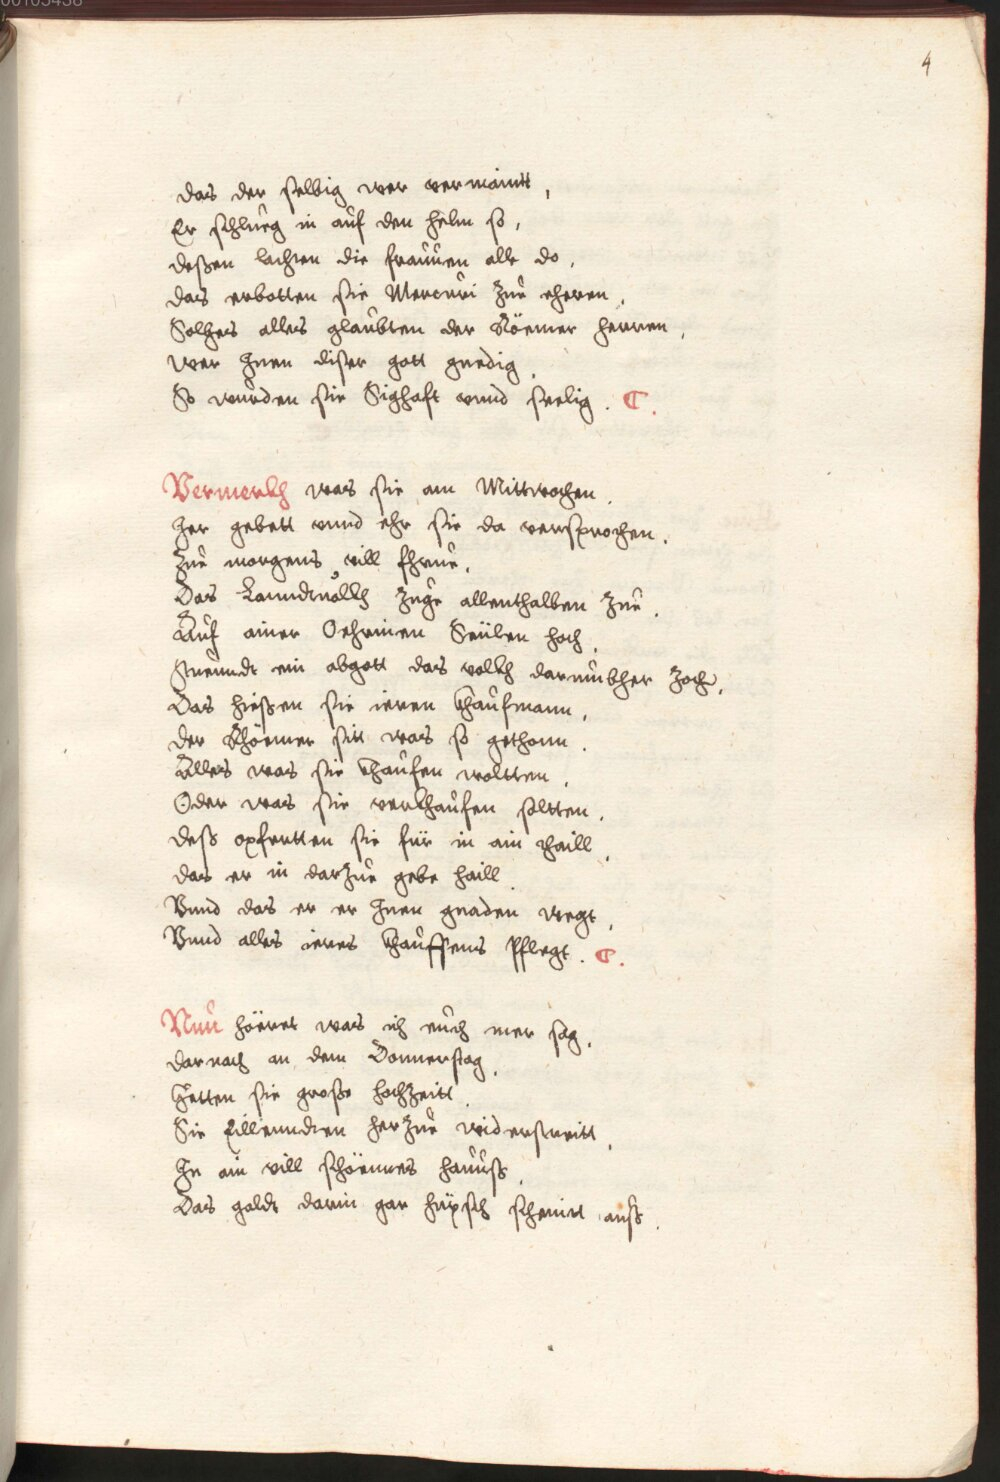 00105438
4
das der selbig wer vermaintt,
Er schlueg in auf den helm so,
deßen lachten die frauuen alle do,
das erbotten sie Mercuri zue eheren,
Solhes alles glaubten der Röemer herren,
wer Inen diser gott gnedig,
So wurden sie Sighaft vnnd seelig. C.
Vermerkh was sie am Mittwochen,
Her gebett vnnd ehr sie da versprochen,
zue morgens vill fhrue,
Das Lanndtuolkh zuge allenthalben zue,
Auf ainer Oehrinen Seülen hoch,
Stuenndt ein abgott das volkh darumbher zoch,
Das hießen sie ieren khaufmann,
der Rhöemer sitt was so gethonn,
Alles was sie khaufen woltten,
Oder was sie verkhaufen soltten,
deß opfertten sie für in ain thaill,
das er in darzue gebe haill,
Vnnd das er er Inen gnaden wegt,
Vnnd alles ieres khauffens Pflegt. C.
Nun höeret was ich euch mer sag,
darnach an dem Donnerstag,
Hetten sie große hochzeitt,
Sie Eillenndten herzue widerstreitt,
In ain vill schöennes hauuß,
Das goldt darin gar hüpsch scheintt auß.